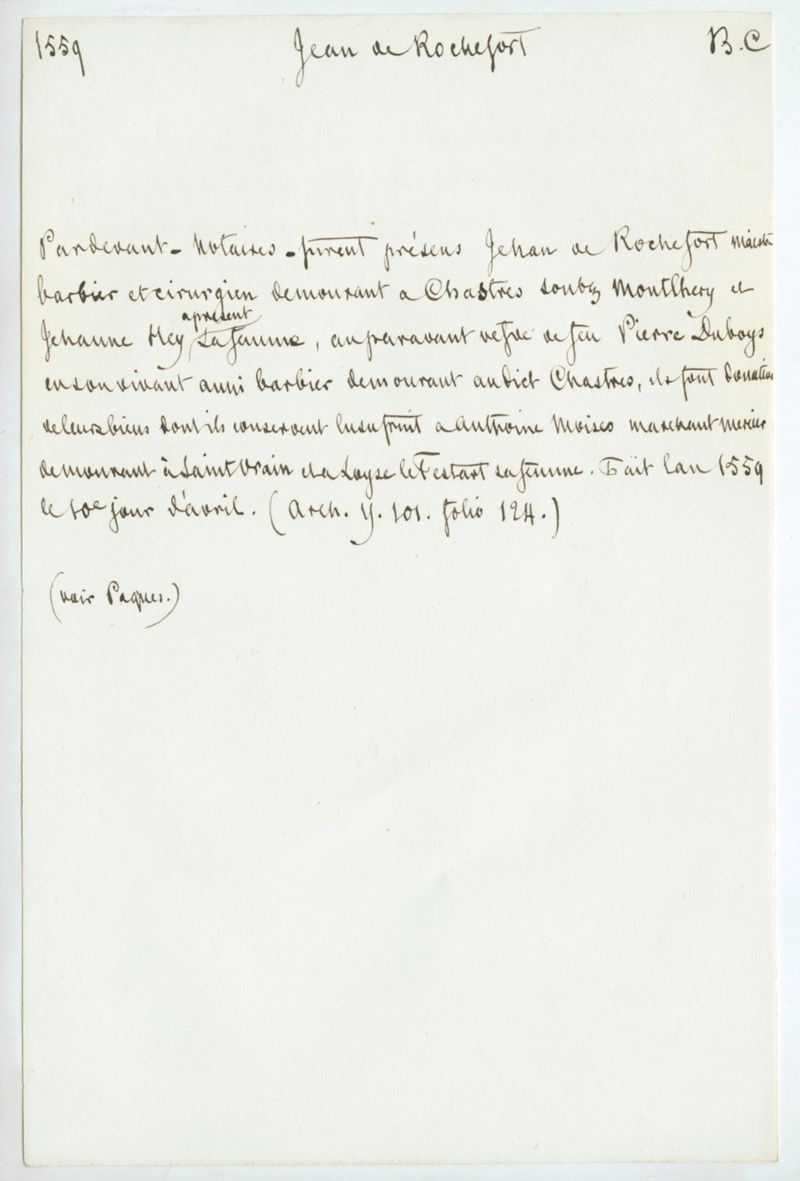 1559 Jean de Rochefort B.C
Pardevant - Notaires - furent présens Jehan de Rochefort maistre
barbier et cirurgien demourant a Chastres soubz Montlhery et
apresent
Jehanne Hey sa femme, auparavant vefve de feu Pierre Duboys
en son vivant aussi barbier demourant audict Chastres, ils font donation
de leurs biens dont ils conservent lusufruit a Anthoine Moises marchant mercier
demourant à Saint Vrain et a Loyse le Testart sa femme. Fait lan 1559
le 10e jour d'avril. (Arch. Y. 101. folio 124.)
(voir Paques.)